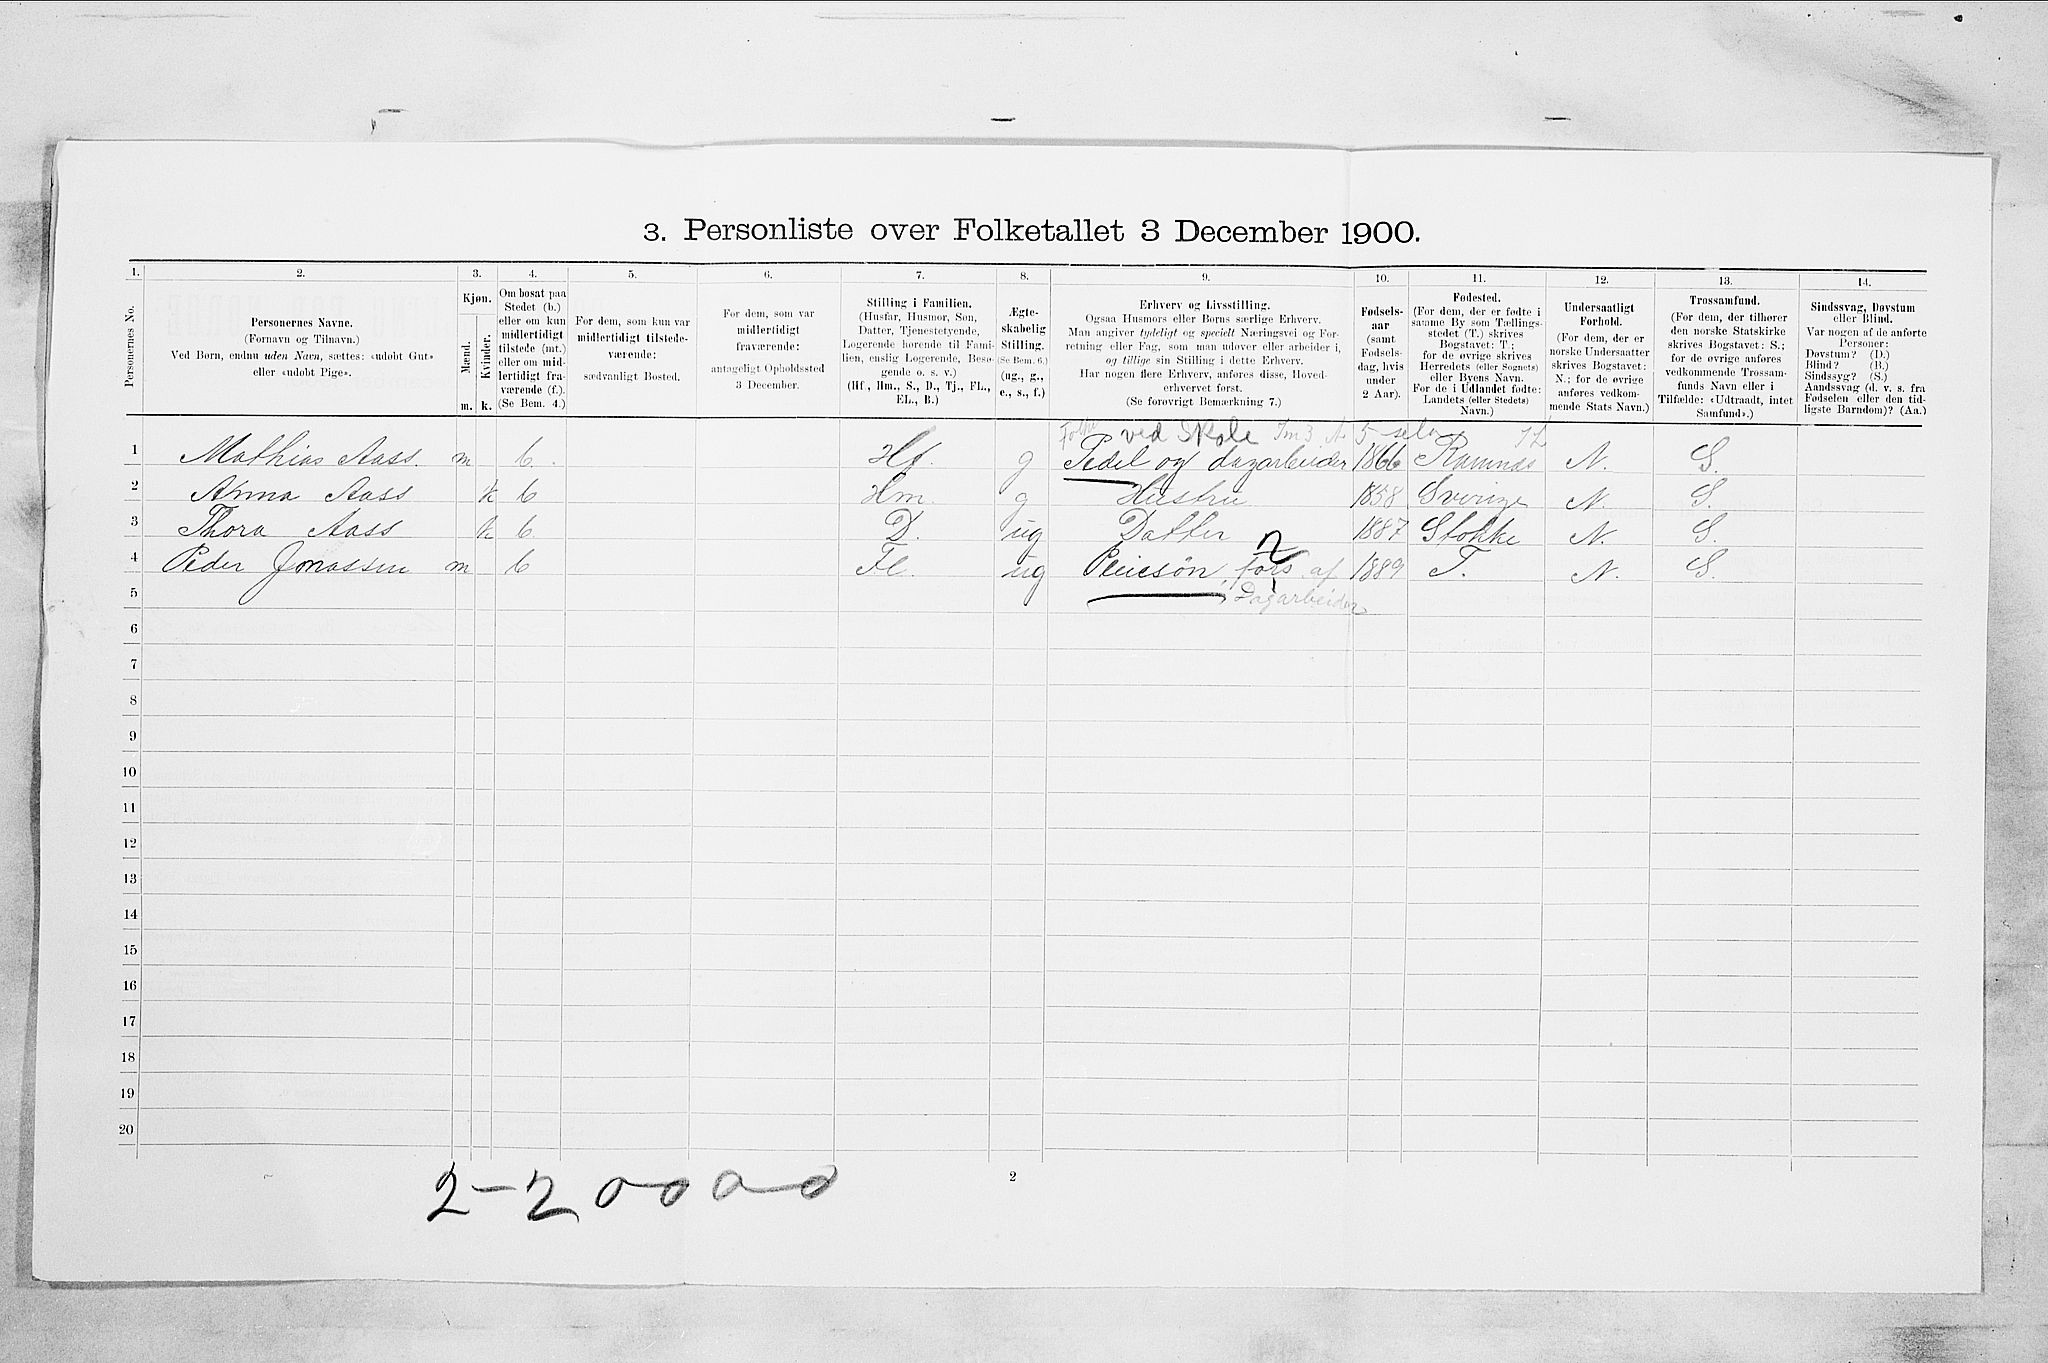 3. Personliste over Folketallet 3 December 1900.
1. 2. 3. 4. 5. 6. 7. 8. 9. 10. 11. 12. 13. 14.
Personernes No.
Personernes Navne.
(Fornavn og Tilnavn.)
Ved Børn, endnu uden Navn, sættes: «udøbt Gut»
eller «udøbt Pige».
Kjøn.
Mænd.
Kvinder.
m. k.
Om bosat paa
Stedet (b.)
eller om kun
midlertidigt
tilstede (mt.)
eller om mid-
lertidigt fra-
værende (f.).
(Se Bem. 4.)
For dem, som kun var
midlertidigt tilstede-
værende:
sædvanligt Bosted.
For dem, som var
midlertidigt
fraværende:
antageligt Opholdssted
3 December.
Stilling i Familien.
(Husfar, Husmor, Søn,
Datter, Tjenestetyende,
Logerende hørende til Fami-
lien, enslig Logerende, Besø-
gende o. s. v.)
(Hf., Hm., S., D., Tj., FL.,
EL., B.)
Ægte-
skabelig
Stilling.
(Se Bem. 6.)
(ug., g.,
e., s., f.)
Erhverv og Livsstilling.
Ogsaa Husmors eller Børns særlige Erhverv.
Man angiver tydeligt og specielt Næringsvei og For-
retning eller Fag, som man udøver eller arbeider i,
og tillige sin Stilling i dette Erhverv.
Har nogen flere Erhverv, anføres disse, Hoved-
erhvervet først.
(Se forøvrigt Bemærkning 7.)
Fødsels-
aar
(samt
Fødsels-
dag, hvis
under
2 Aar).
Fødested.
(For dem, der er fødte i
samme By som Tællings-
stedet (T.) skrives
Bogstavet: T.;
for de øvrige skrives
Herredets (eller Sognets)
eller Byens Navn.
For de i Udlandet fødte:
Landets (eller Stedets)
Navn.)
Undersaatligt
Forhold.
(For dem, der er
norske Undersaatter
skrives Bogstavet:
N.; for de øvrige
anføres vedkom-
mende Stats Navn.)
Trossamfund.
(For dem, der tilhører
den norske Statskirke
skrives Bogstavet: S.;
for de øvrige anføres
vedkommende Trossam-
funds Navn eller i
Tilfælde: «Udtraadt, intet
Samfund».)
Sindssvag, Døvstum
eller Blind.
Var nogen af de anførte
Personer:
Døvstum? (D.)
Blind? (B.)
Sindssyg? (S.)
Aandssvag (d. v. s. fra
Fødselen eller den tid-
ligste Barndom)? (Aa.)
ved Skole
1 Mathias Aass. m b. Hf. g Pedel og dagarbeider 1866 Ramnes N. S.
2 Anna Aass k b Hm. g Hustru 1858 Sverige N. S.
3 Thora Aass k b. D. ug Datter 1887 Stokke N. S.
4 Peder Jonassen m b Fl. ug Pleiesøn, fors. af 1889 T. N. S.
5 Dagarbeider
6
7
8
9
10
11
12
13
14
15
16
17
18
19
20
2-2 0 0 0 0
2